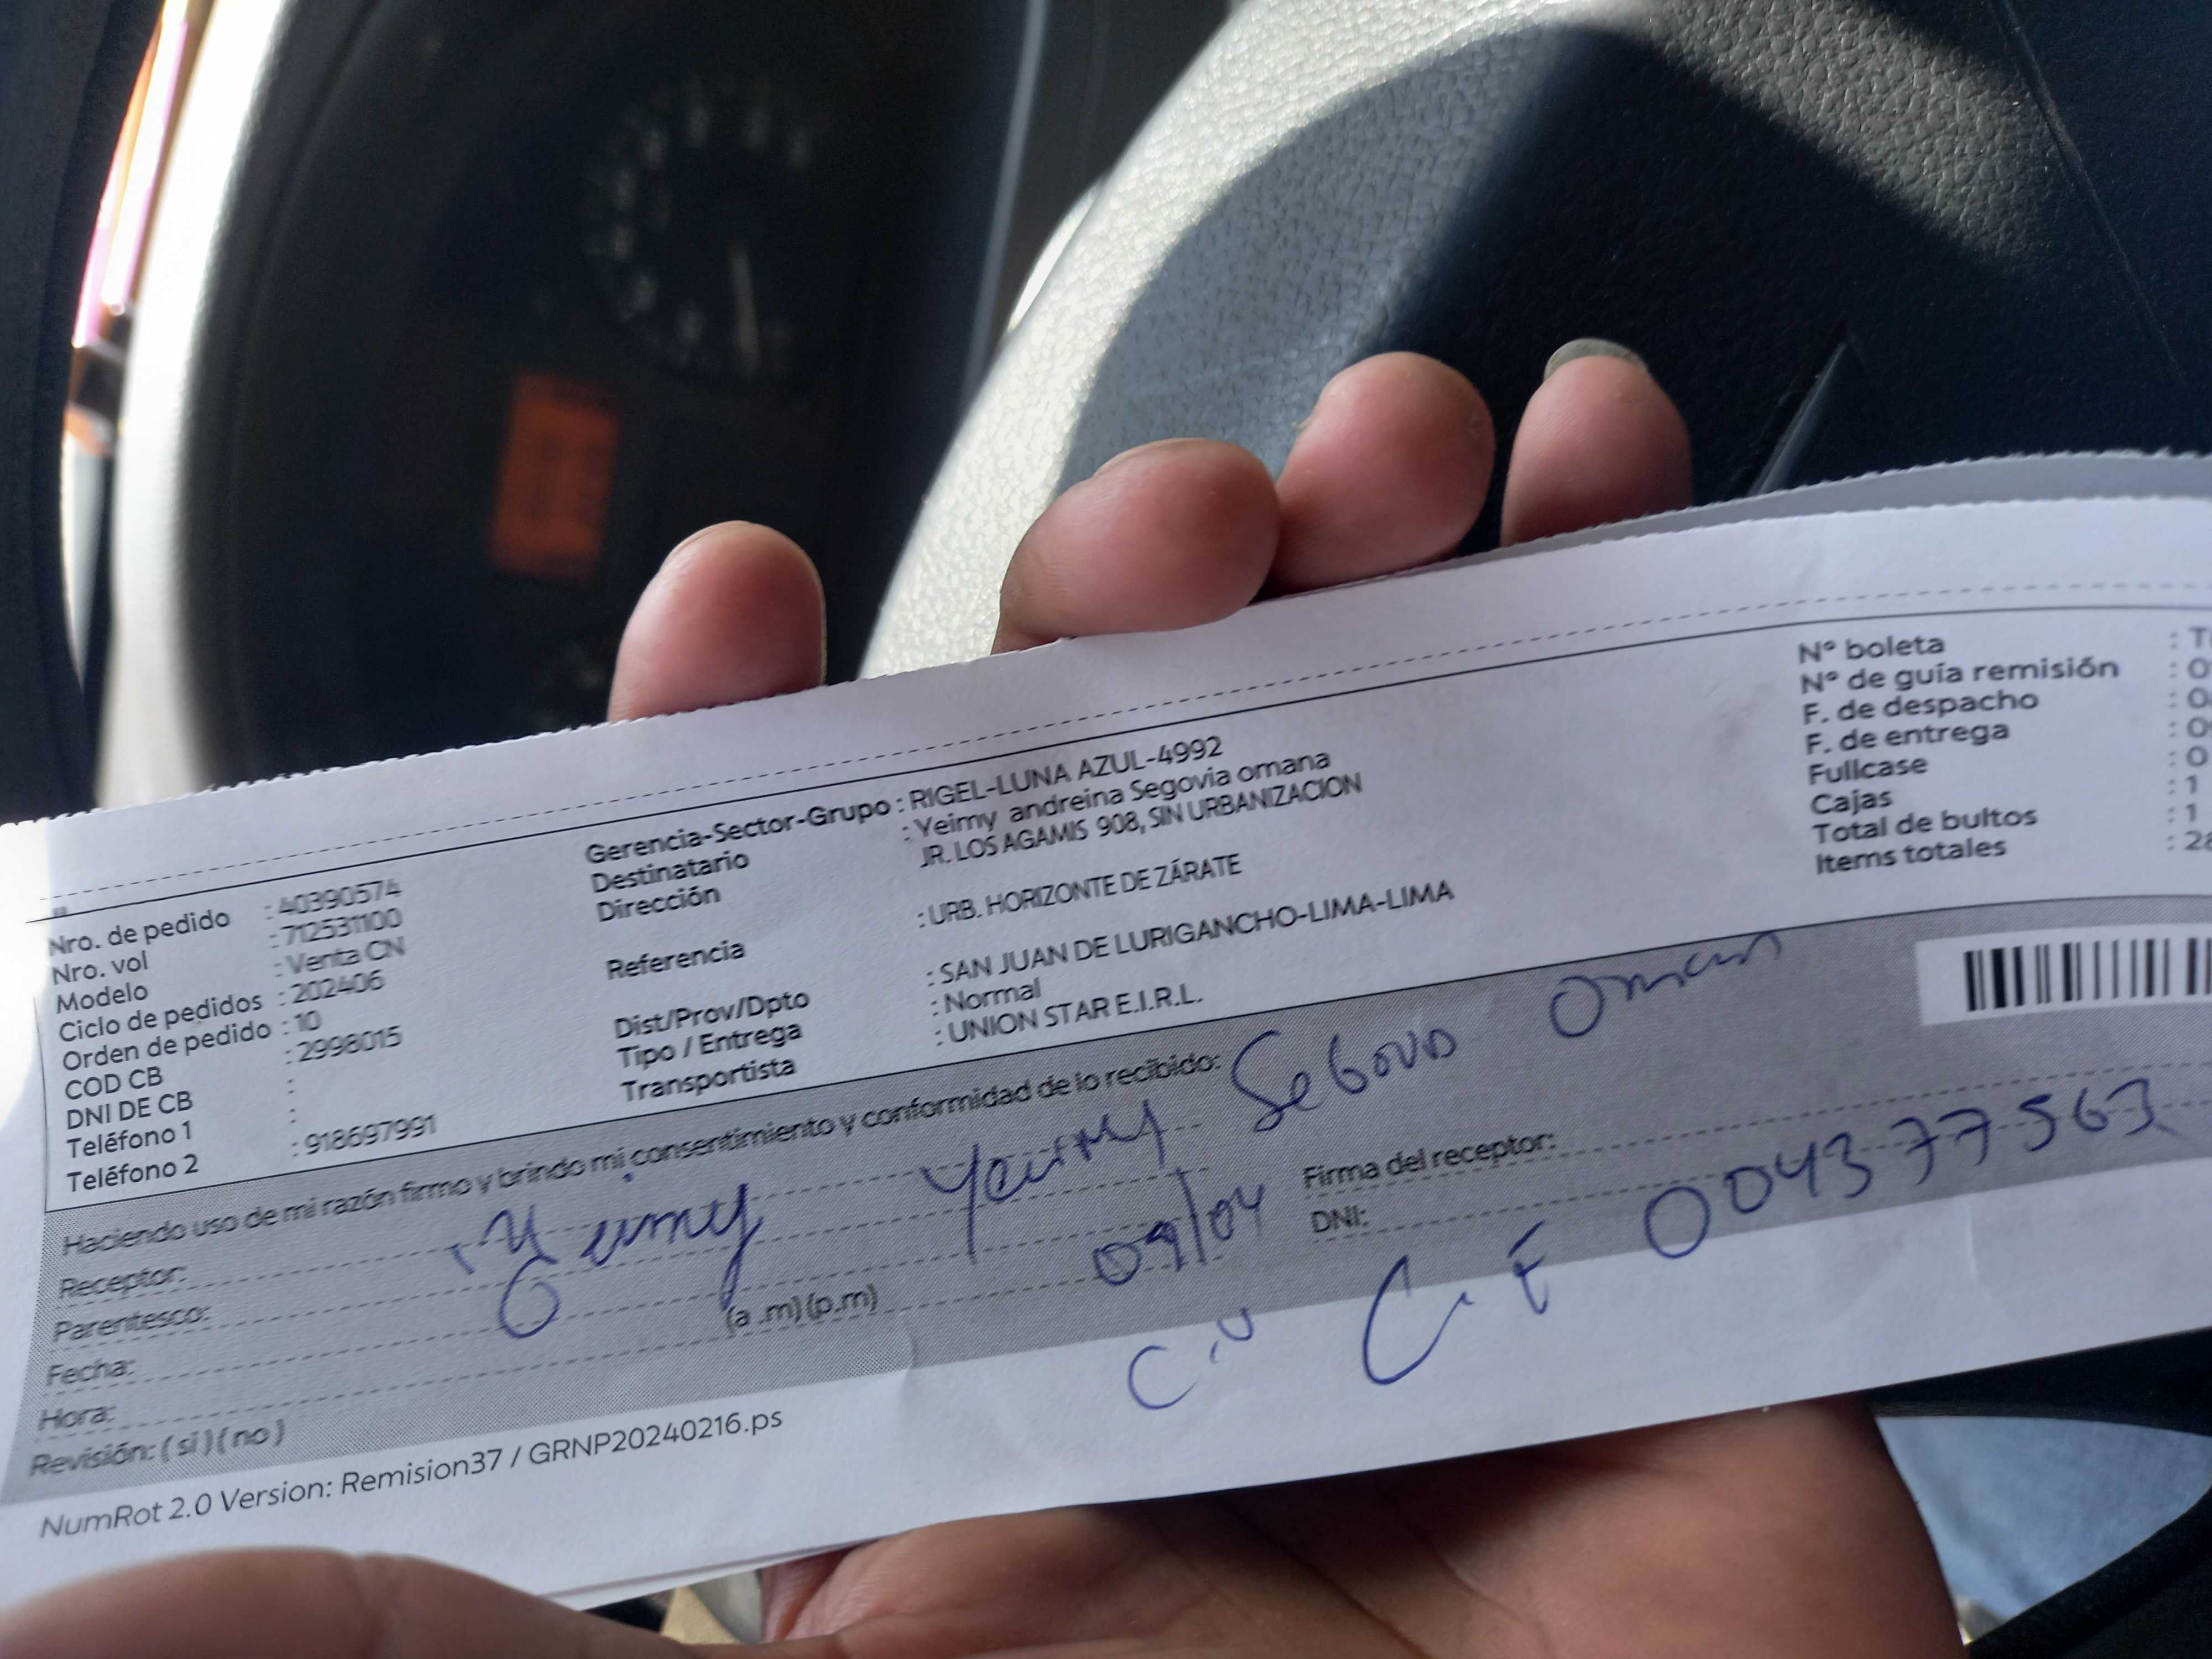 Nro. de pedido : 40390574
Nro. vol : 712531100
Modelo : Venta CN
Ciclo de pedidos : 202406
Orden de pedido : 10
COD CB : 2998015
DNI DE CB :
Teléfono 1 :
Teléfono 2 : 918697991
Gerencia-Sector-Grupo : RIGEL-LUNA AZUL-4992
Destinatario : Yeimy andreina Segovia omana
Dirección JR. LOS AGAMIS 908, SIN URBANIZACION
: URB. HORIZONTE DE ZÁRATE
Referencia
Dist/Prov/Dpto : SAN JUAN DE LURIGANCHO-LIMA-LIMA
Tipo / Entrega : Normal
Transportista : UNION STAR E.I.R.L.
N° boleta : T
N° de guía remisión : 0
F. de despacho : 0
F. de entrega : 0
Fullcase : 0
Cajas : 1
Total de bultos : 1
Items totales : 28
Haciendo uso de mi razón firmo y brindo mi consentimiento y conformidad de lo recibido:
Receptor: Yeimy Yeimy Segovia Oman
Parentesco:
Fecha: 09/04
Hora: (a.m)(p.m)
Revisión: ( si ) ( no )
Firma del receptor:
DNI: C.E 004377563
NumRot 2.0 Version: Remision37 / GRNP20240216.ps